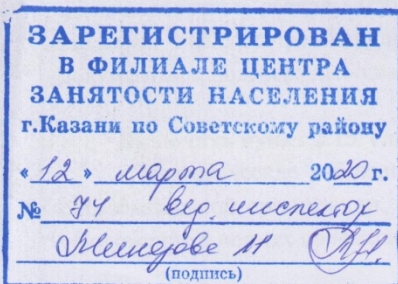 ЗАРЕГИСТРИРОВАН
В ФИЛИАЛЕ ЦЕНТРА
ЗАНЯТОСТИ НАСЕЛЕНИЯ
г.Казани по Советскому району
«12» марта 2020г.
№ 74 вед. инспектор
(подпись)